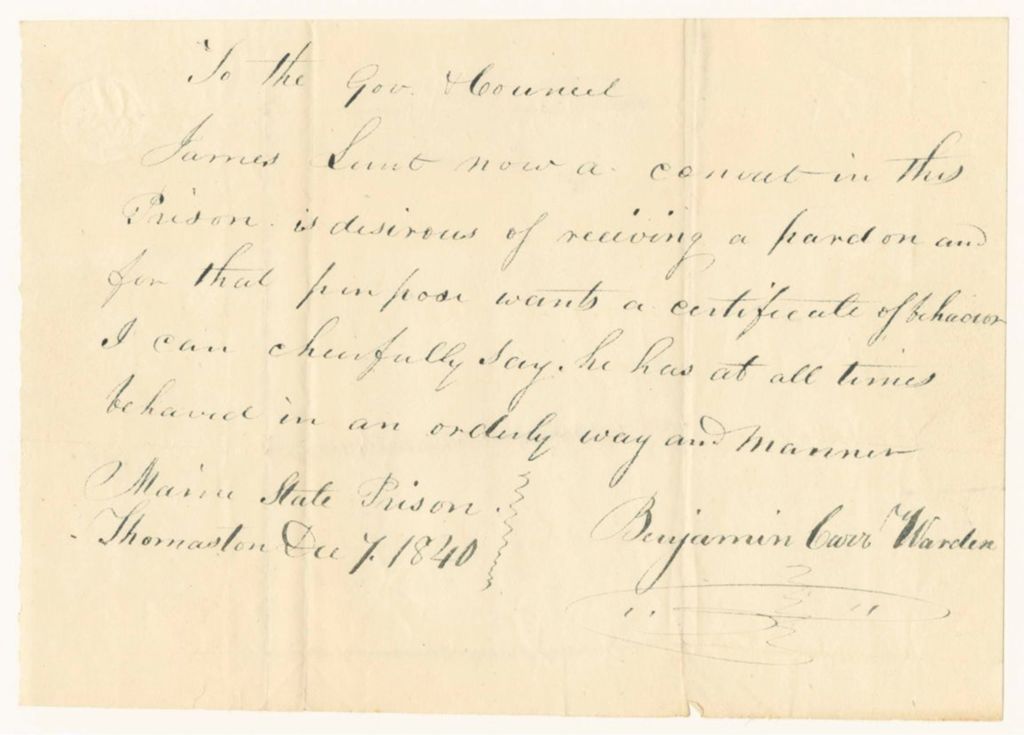 To the Gov. & Council
James Lunt now a convict in this
Prison is desirous of reciving a pardon and
for that purpose wants a certificate of behavior
I can cheerfully say, he has at all times
behaved in an orderly way and manner
Maine State Prison.
Thomaston Dec 7. 1840
Benjamin Carr Warden